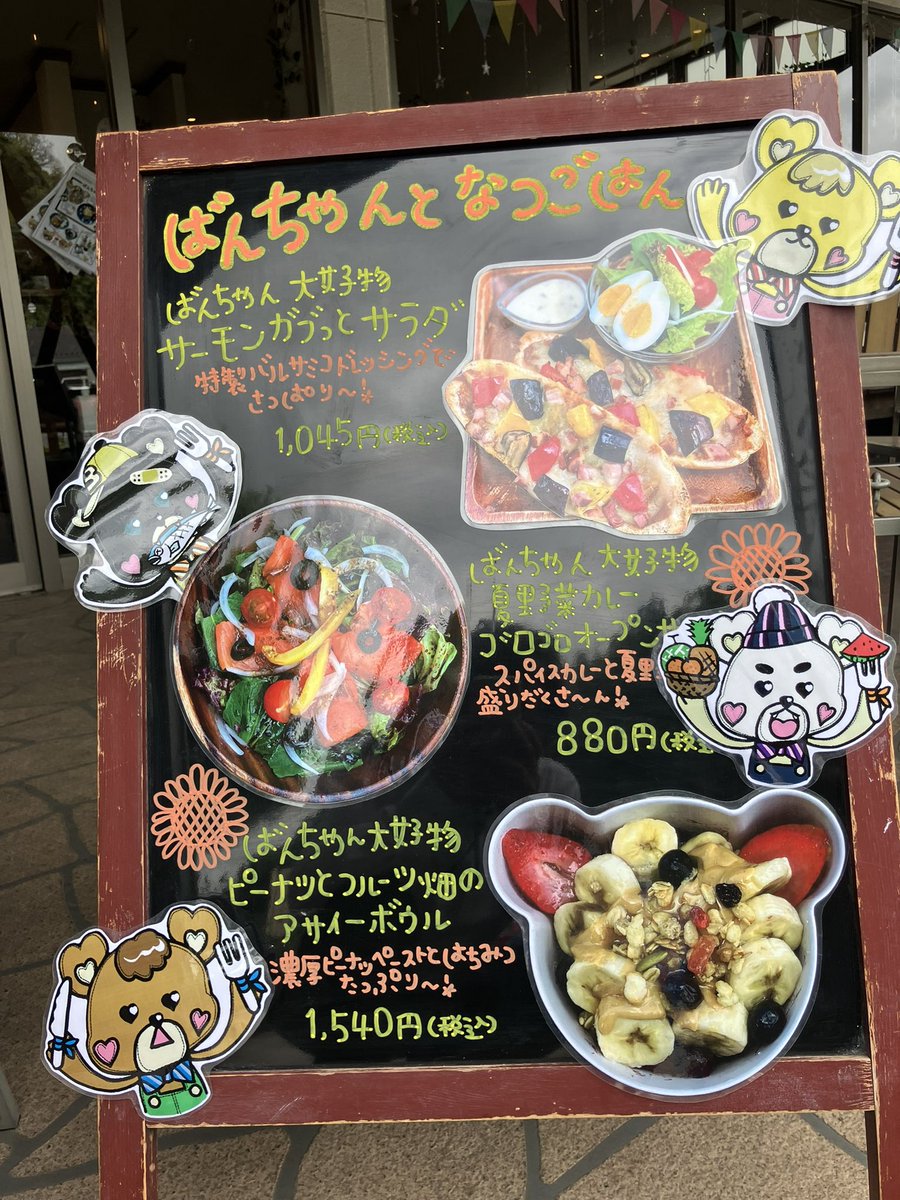 ばんちゃんとなつごはん
ばんちゃん 大好物
サーモンガブっとサラダ
特製バルサミコドレッシングで
さっぱり〜!
1,045円(税込)
ばんちゃん 大好物
夏野菜カレー
ゴロゴロオープンサ
スパイスカレーと夏野
盛りだくさ〜ん!
880円(税込
ばんちゃん大好物
ピーナツとフルーツ畑の
アサイーボウル
濃厚ピーナッツペーストとはちみつ
たっぷり〜!
1,540円(税込)